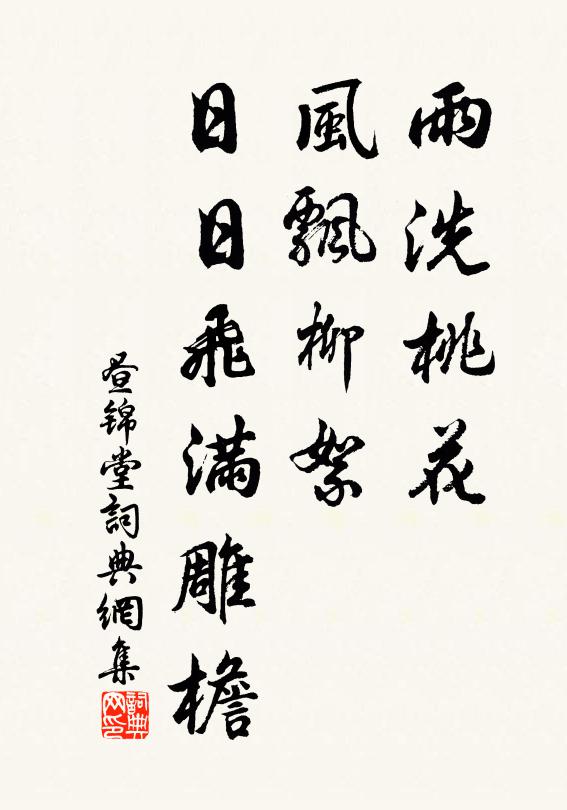 雨洗桃花
風飄柳絮
日日飛滿雕檐
昼錦堂詞典網集
詞典網印